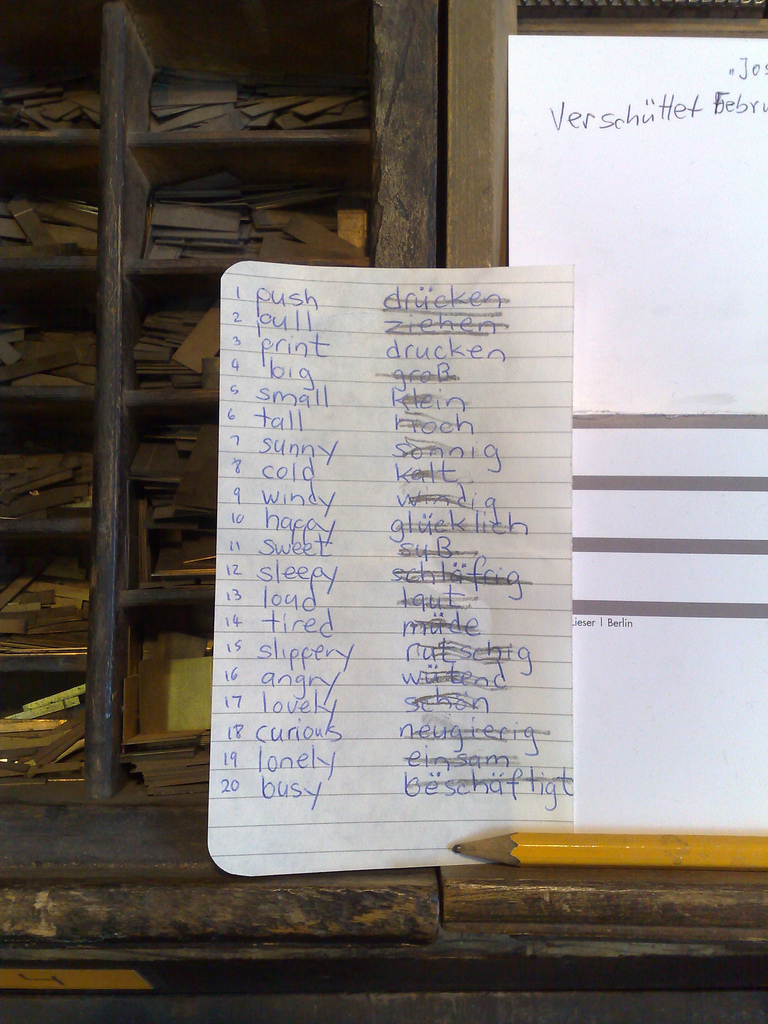 "Jos
Verschüttet Febru
1 push drücken
2 pull ziehen
3 print drucken
4 big groß
5 small klein
6 tall hoch
7 sunny sonnig
8 cold kalt
9 windy windig
10 happy glücklich
11 sweet süß
12 sleepy schläfrig
13 loud laut
14 tired müde
15 slippery rutschig
16 angry wütend
17 lovely schön
18 curious neugierig
19 lonely einsam
20 busy bëschäftigt
ieser | Berlin
4